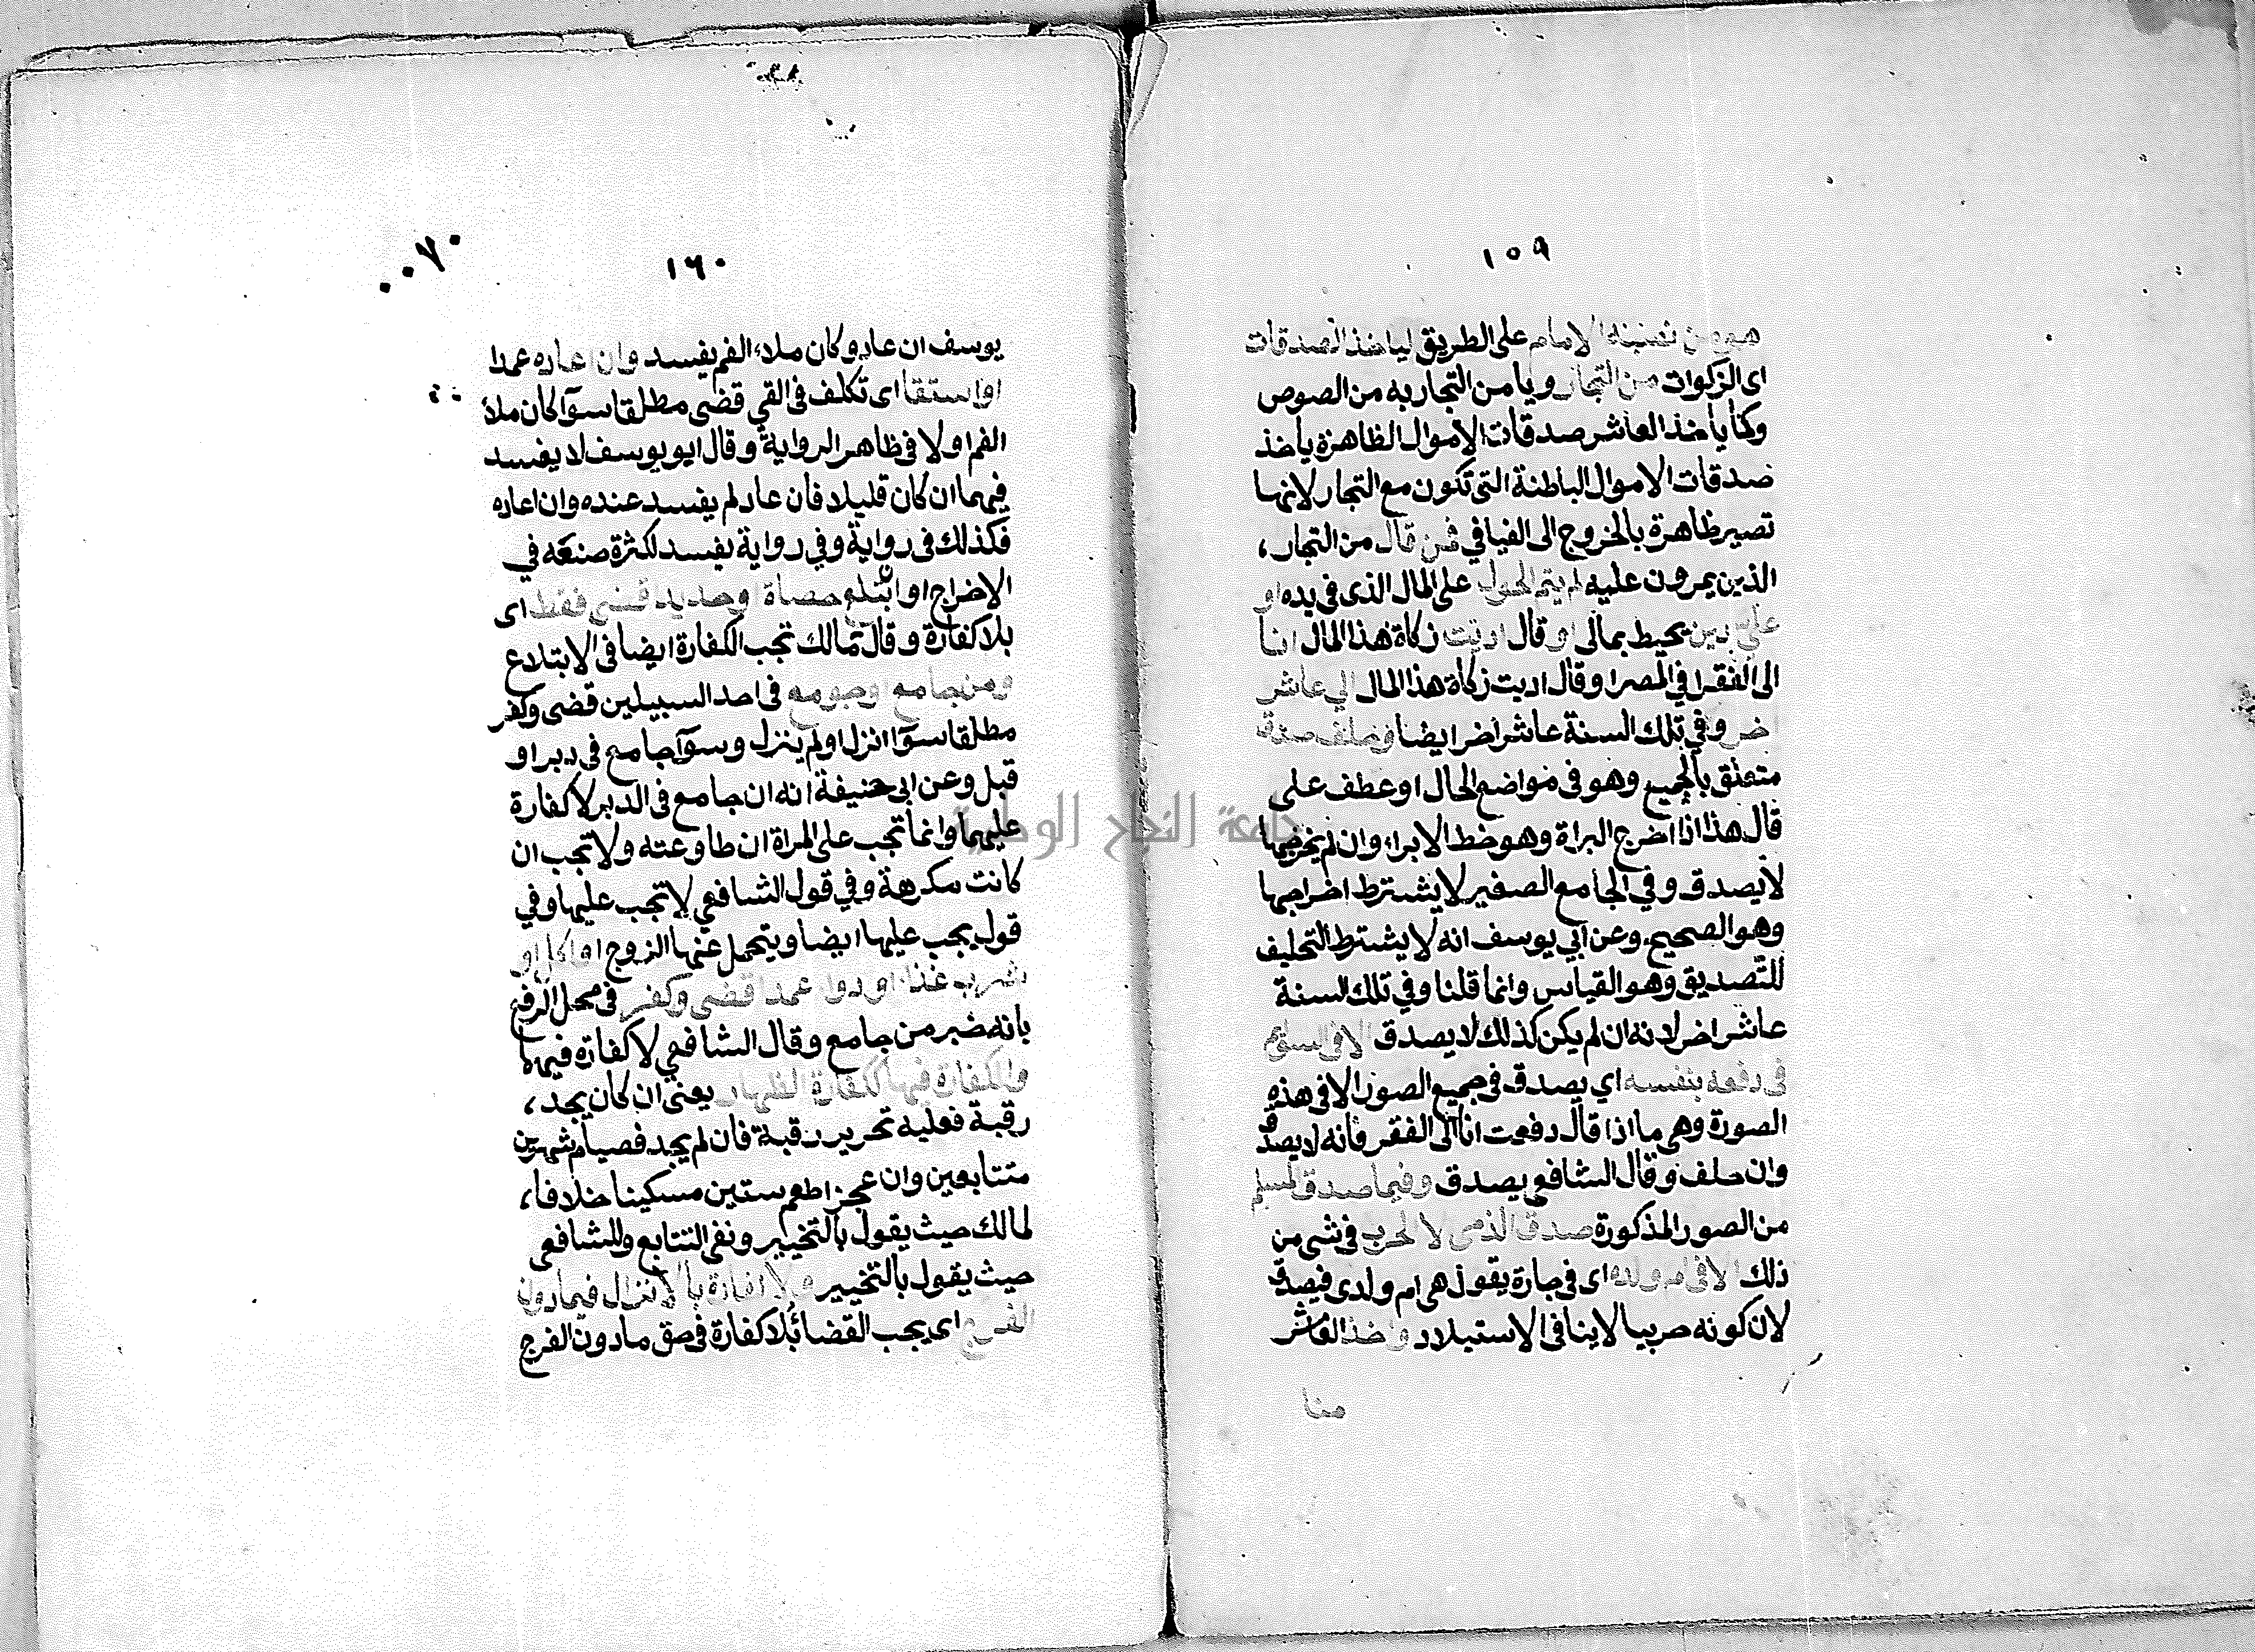 ١٥٩
هو من نصبه الامام على الطريق ليأخذ الصدقات
اى الزكوات من التجار ويأمن التجار به من الصوص
وكما يأخذ العاشر صدقات الاموال الظاهرة يأخذ
صدقات الاموال الباطنة التى تكون مع التجار لانها
تصير ظاهرة بالخروج الى الفيافي فمن قال من التجار،
الذين يمرون عليه لم يتم الحول على المال الذى فى يده او
على دين يحيط بمالى او قال اديت زكاة هذا المال انا
الى الفقرا في المصر او قال اديت زكاة هذا المال الى عاشر
اخر وفي تلك السنة عاشر اخر ايضا وحلف صدق
متعلق بالجميع وهو فى مواضع الحال او عطف على
قال هذا اذا اخرج البراة وهو خط الابراء وان لم يخرجها
لا يصدق وفي الجامع الصغير لا يشترط اخراجها
وهو الصحيح وعن ابي يوسف انه لا يشترط التحليف
للتصديق وهو القياس وانما قلنا وفي تلك السنة
عاشر اخر لانه ان لم يكن كذلك لا يصدق الا فى السوائم
فى دفعه بنفسه اي يصدق فى جميع الصور الا فى هذه
الصورة وهى ما اذا قال دفعت انا الى الفقر فانه لا يصدق
وان حلف وقال الشافعي يصدق وفيما صدق المسلم
من الصور المذكورة صدق الذمى لا الحربي فى شى من
ذلك الا فى ام ولده اى فى جارة يقول هى ام ولدى فيصدق
لان كونه حربيا لا ينافى الاستيلاد واخذ العاشر
منا
١٦٠
٠٠٧٠
يوسف ان عاد وكان ملاء الفم يفسد وان اعاده عمدا
او استقا اى تكلف فى القي قضى مطلقا سوآ كان ملأ
الفم او لا فى ظاهر الرواية وقال ابو يوسف لا يفسد
فيهما ان كان قليلا فان عاد لم يفسد عنده وان اعاده
فكذلك فى رواية وفي رواية يفسد لكثرة صنعه في
الاخراج او ابتلع حصاة او حديد قضى فقط اى
بلا كفارة وقال مالك تجب الكفارة ايضا فى الابتلاع
ومن جامع او جومع فى احد السبيلين قضى وكفر
مطلقا سوآ انزل او لم ينزل وسوآ جامع فى دبر او
قبل وعن ابى حنيفة انه ان جامع فى الدبر لا كفارة
عليهما وانما تجب على المراة ان طاوعته ولا تجب ان
كانت مكرهة وفي قول الشافعي لا تجب عليها وفي
قول يجب عليها ايضا ويتحمل عنها الزوج او اكل او
شرب غذا او دوا عمدا قضى وكفر فى محل الرفع
بانه خبر من جامع وقال الشافعي لا كفارة فيهما
والكفارة فيها ككفارة الظهار يعنى ان كان يجد،
رقبة فعليه تحرير رقبة فان لم يجد فصيام شهرين
متتابعين وان عجز اطعم ستين مسكينا خلافا،
لمالك حيث يقول بالتخيير ونفى التتابع وللشافعى
حيث يقول بالتخيير ولا كفارة بالانزال فيما دون
الفرج اى يجب القضا بلا كفارة فى حق ما دون الفرج
جامعة النجاح الوطنية